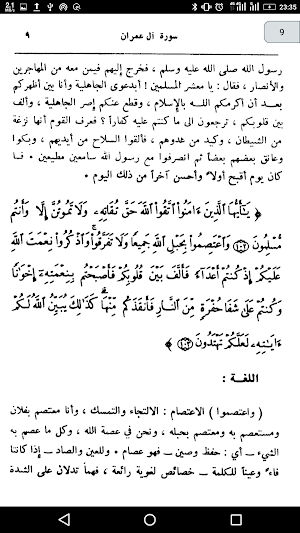 23:35
9
سورة آل عمران ٩
رسول الله صلى الله عليه وسلم ، فخرج إليهم فيمن معه من المهاجرين
والأنصار ، فقال : يا معشر المسلمين ! أبدعوى الجاهلية وأنا بين أظهركم
بعد أن أكرمكم الله بالإسلام ، وقطع عنكم إصر الجاهلية ، وألف
بين قلوبكم ، ترجعون الى ما كنتم عليه كفاراً ؟ فعرف القوم أنها نزغة
من الشيطان ، وكيد من عدوهم ، فألقوا السلاح من أيديهم ، وبكوا
وعانق بعضهم بعضاً ثم انصرفوا مع رسول الله سامعين مطيعين . فما
كان يوم أقبح أولا ً وأحسن آخراً من ذلك اليوم .
﴿ يَـٰٓأَيُّهَا ٱلَّذِينَ ءَامَنُوا۟ ٱتَّقُوا۟ ٱللَّهَ حَقَّ تُقَاتِهِۦ وَلَا تَمُوتُنَّ إِلَّا وَأَنتُم
مُّسْلِمُونَ ﴿١٠٢﴾ وَٱعْتَصِمُوا۟ بِحَبْلِ ٱللَّهِ جَمِيعًا وَلَا تَفَرَّقُوا۟ وَٱذْكُرُوا۟ نِعْمَتَ ٱللَّهِ
عَلَيْكُمْ إِذْ كُنتُمْ أَعْدَآءً فَأَلَّفَ بَيْنَ قُلُوبِكُمْ فَأَصْبَحْتُم بِنِعْمَتِهِۦٓ إِخْوَٰنًا
وَكُنتُمْ عَلَىٰ شَفَا حُفْرَةٍ مِّنَ ٱلنَّارِ فَأَنقَذَكُم مِّنْهَا كَذَٰلِكَ يُبَيِّنُ ٱللَّهُ لَكُمْ
ءَايَـٰتِهِۦ لَعَلَّكُمْ تَهْتَدُونَ ﴿١٠٣﴾ ﴾
اللغة :
( واعتصموا ) الاعتصام : الالتجاء والتمسك ، وأنا معتصم بفلان
ومستعصم به ومعتصم بحبله ، ونحن في عصمة الله ، وكل ما عصم به
الشيء ــ أي : حفظ وصين ــ فهو عصام . وللعين والصاد ــ إذا كانتا
فاء ً وعيناً للكلمة ــ خصائص لغوية رائعة ، فهما تدلان على الشدة